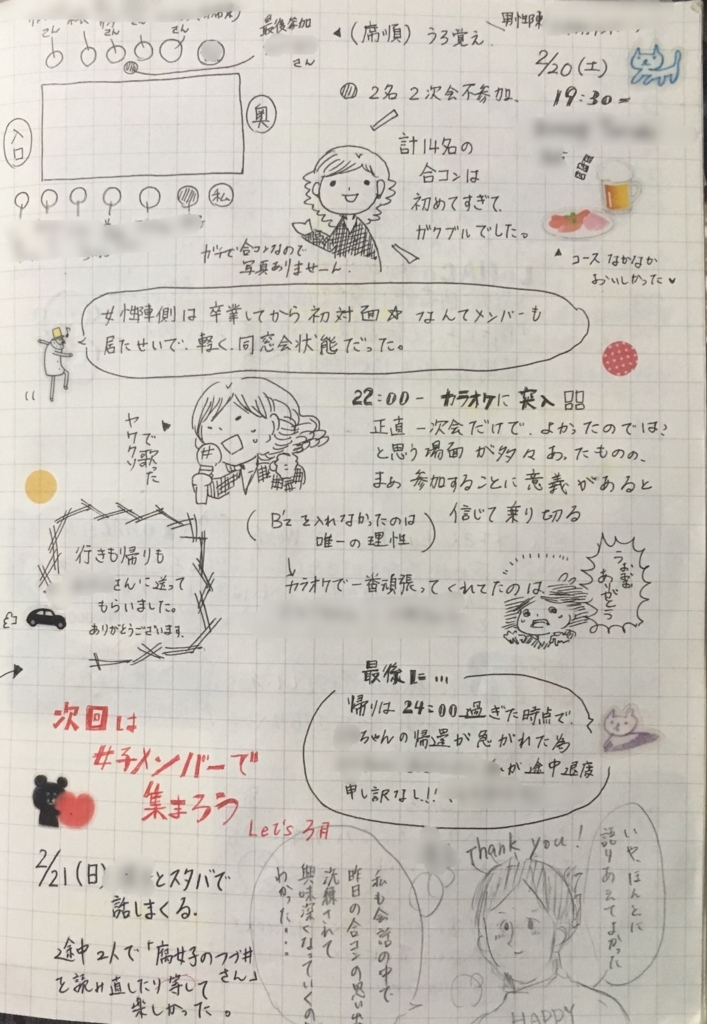 さん さん さん
最後参加
さん
◀(席順) うろ覚え
男性陣
2/20(土)
19:30-
2名 2次会不参加
入口
奥
私
計14名の
合コンは
初めてすぎて
ガクブルでした。
ガチで合コンなので
写真ありませーん.
▲ コース なかなか
おいしかった♥
女性陣側は 卒業してから 初対面☆ なんてメンバーも
居たせいで、軽く、同窓会状態だった。
ヤケクソ
で歌った
22:00- カラオケに 突入
正直 一次会だけで、よかったのでは?
と思う場面 が多々 あったものの、
まぁ 参加することに 意義 があると
信じて 乗り切る
(B'z を入れなかったのは
唯一の 理性)
カラオケで一番頑張って くれてたのは
うぉぉ
ありがとう
行きも帰りも
さんに送って
もらいました。
ありがとうございます.
最後に…
帰りは 24:00 過ぎた時点で、
ちゃんの帰還が 急がれた為
が途中退席
申し訳なし!!、
次回は
女子メンバーで
集まろう
Let's 3月
2/21(日) とスタバで
話しまくる.
途中 2人で「腐女子のつづ井さん」
を読み直したり等して
楽しかった。
私も会話の中で
昨日の合コンの思い出
洗練されて
興味深くなっていくの
わかった・・・
Thank you!
いや、ほんとに
語りあえてよかった
HAPPY